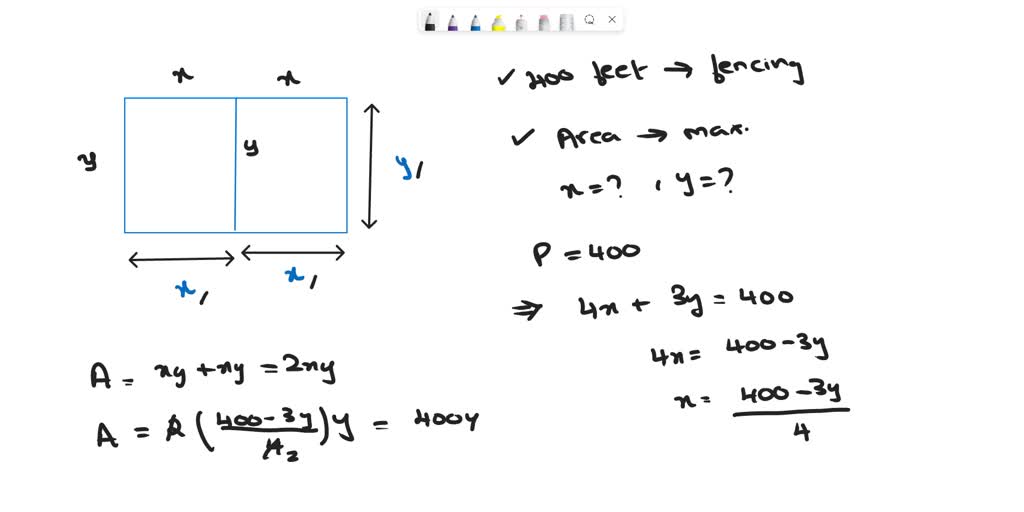 x x
y y y,
x, x,
✓ 400 feet → fencing
✓ Area → max.
x = ? , y = ?
P = 400
⇒ 4x + 3y = 400
4x = 400 - 3y
x = (400 - 3y)/4
A = xy + xy = 2xy
A = 2 ((400 - 3y)/4 2) y = 400y